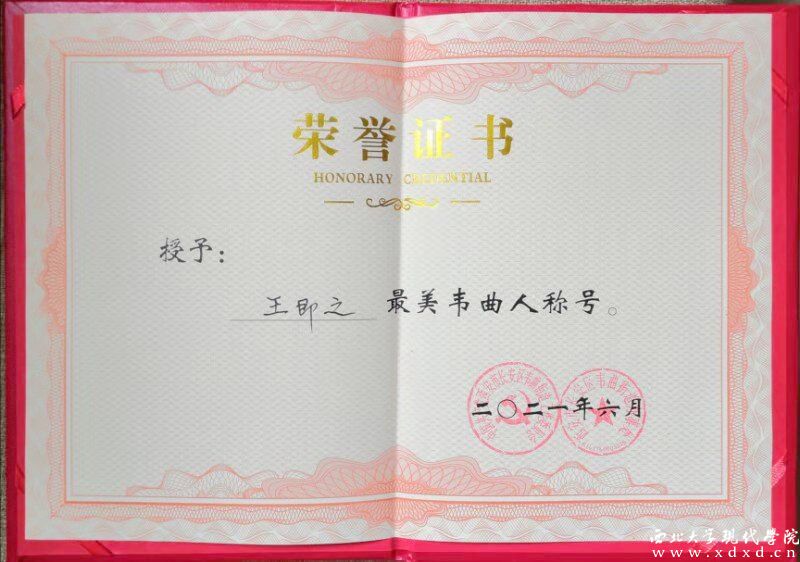 荣誉证书
HONORARY CREDENTIAL
授予：
王即之 最美韦曲人称号。
二〇二一年六月
西北大学现代学院
www.xdxd.cn